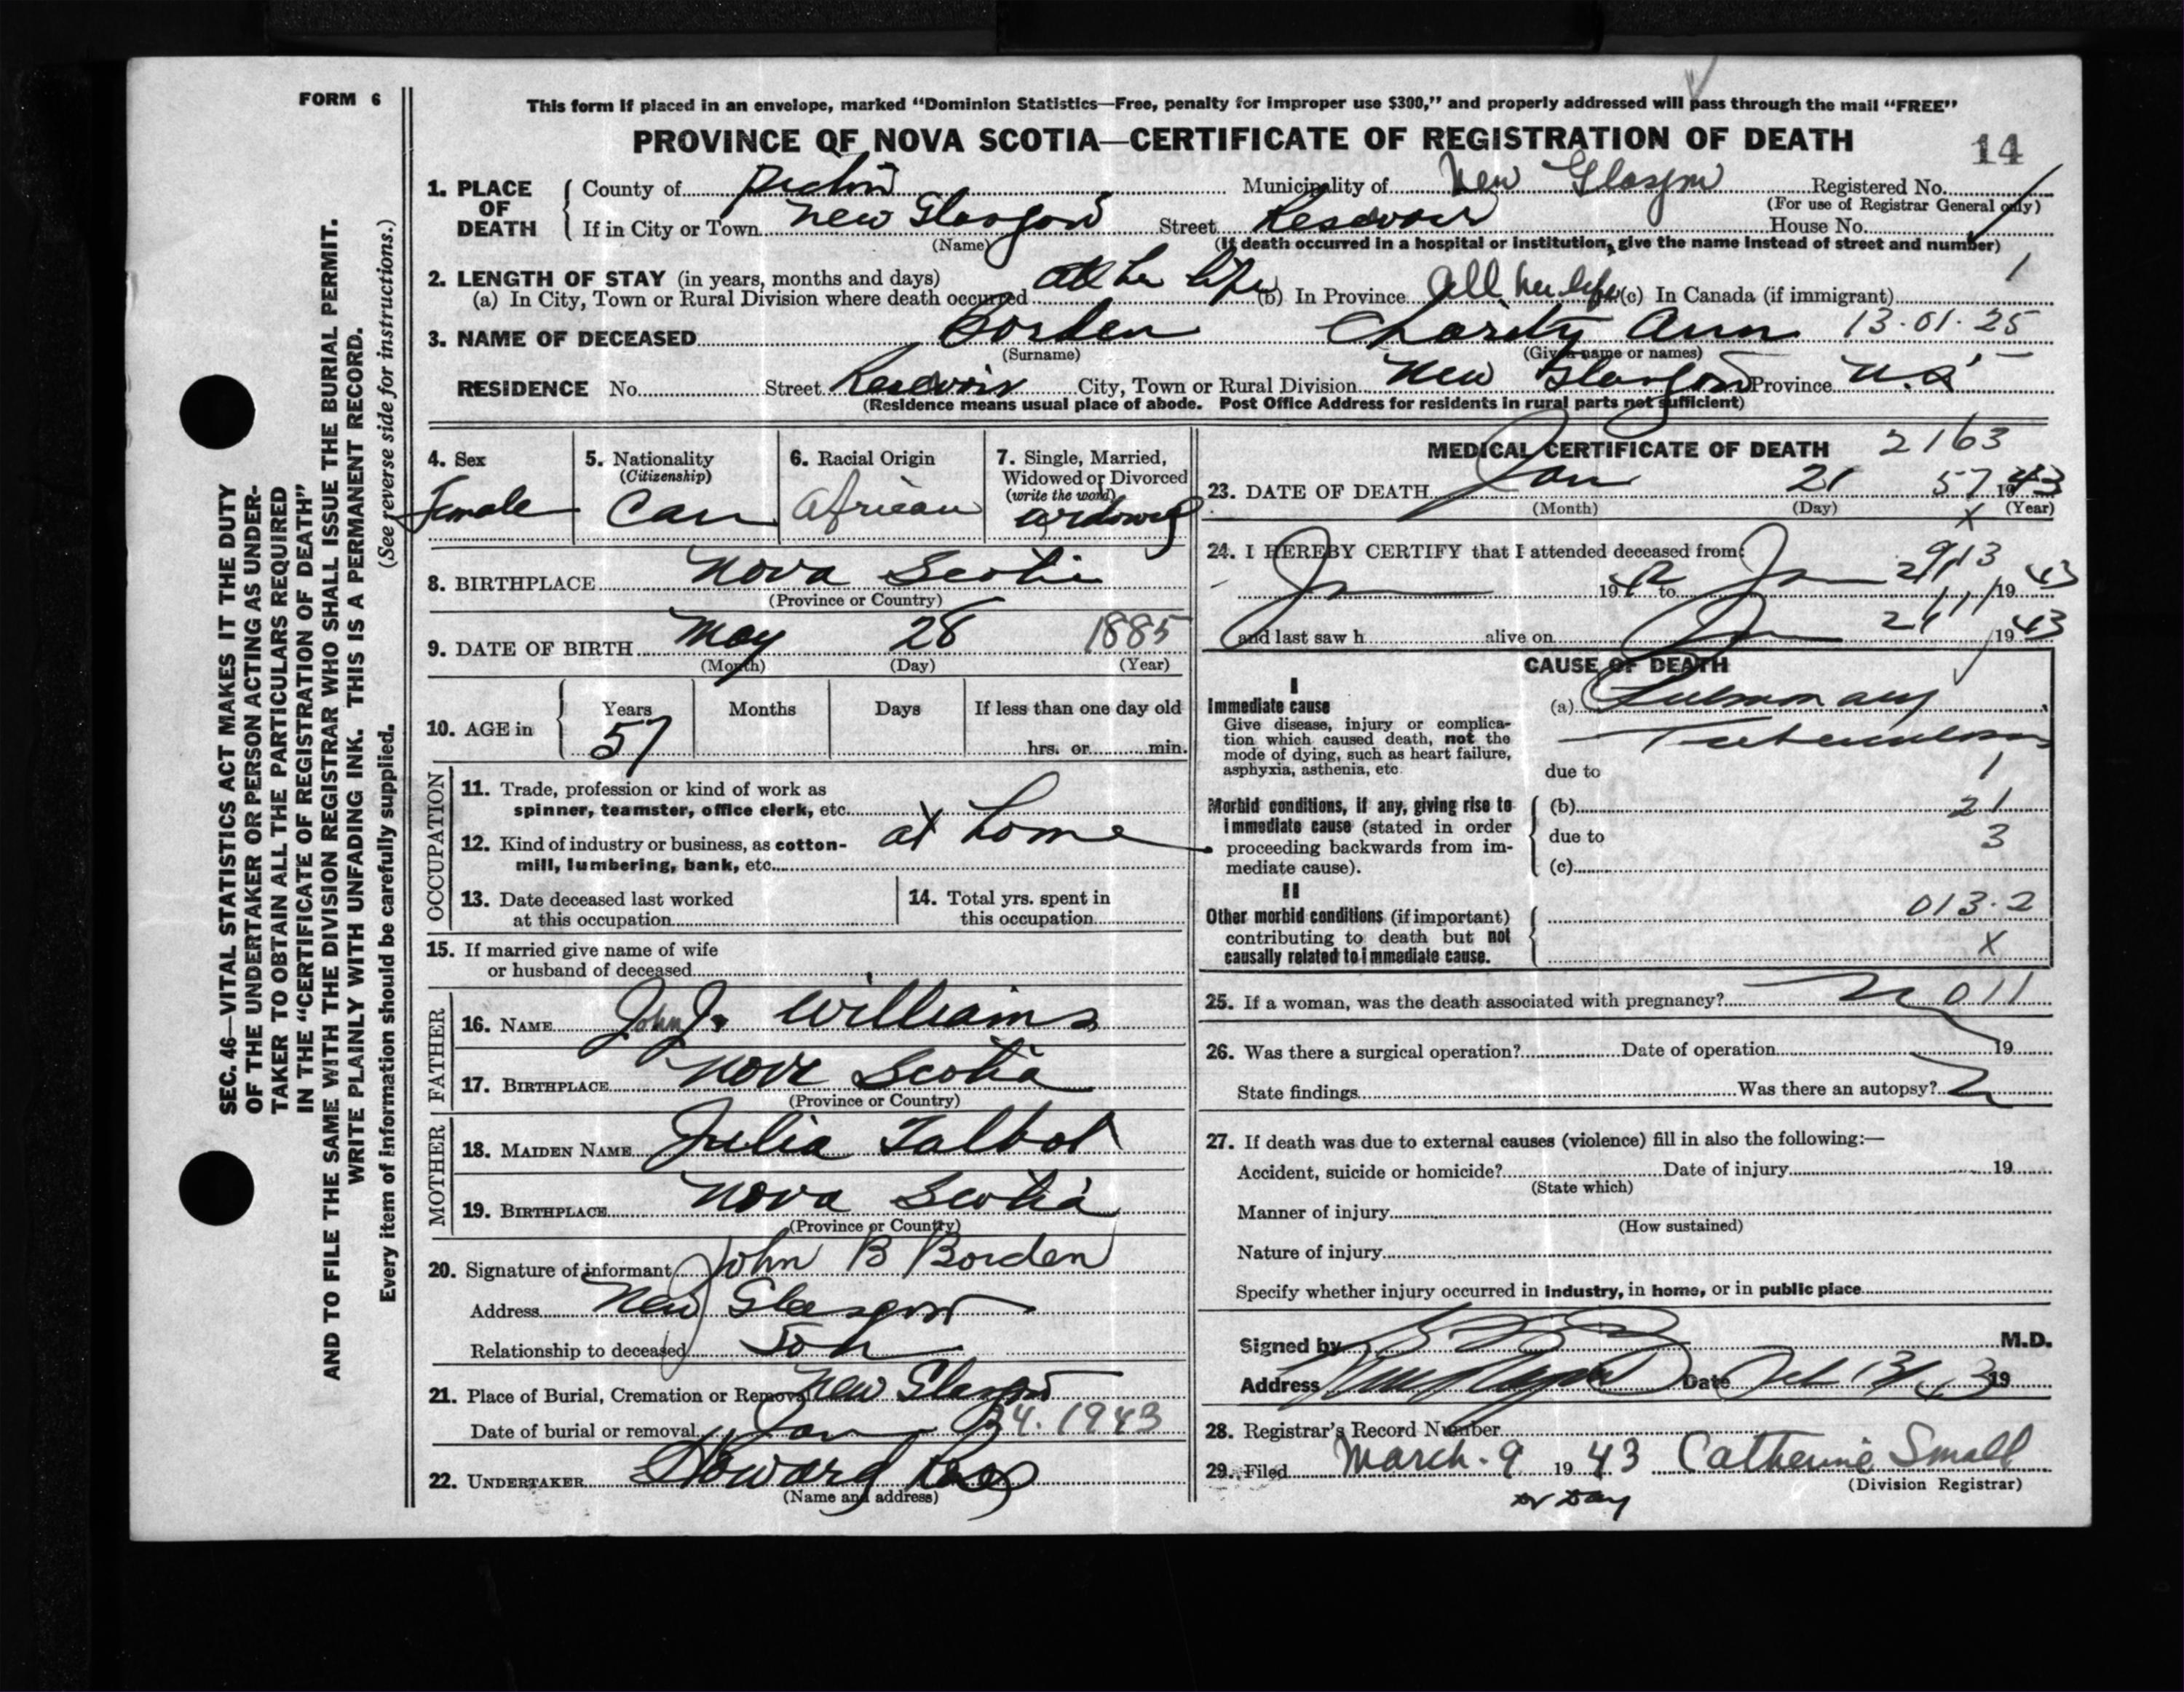 FORM 6
This form if placed in an envelope, marked "Dominion Statistics—Free, penalty for improper use $300," and properly addressed will pass through the mail "FREE"
PROVINCE OF NOVA SCOTIA—CERTIFICATE OF REGISTRATION OF DEATH
14
1. PLACE OF DEATH { County of Pictou Municipality of New Glasgow Registered No.
(For use of Registrar General only)
If in City or Town New Glasgow Street Resevoir House No.
(Name) (If death occurred in a hospital or institution, give the name instead of street and number)
2. LENGTH OF STAY (in years, months and days) 1
(a) In City, Town or Rural Division where death occurred all her life (b) In Province all her life (c) In Canada (if immigrant)
3. NAME OF DECEASED Borden Charity Ann 13·01·25
(Surname) (Given name or names)
RESIDENCE No. Street Resevoir City, Town or Rural Division New Glasgow Province N.S
(Residence means usual place of abode. Post Office Address for residents in rural parts not sufficient)
4. Sex Female
5. Nationality (Citizenship) Can
6. Racial Origin African
7. Single, Married, Widowed or Divorced (write the word) widowed
8. BIRTHPLACE Nova Scotia
(Province or Country)
9. DATE OF BIRTH May 28 1885
(Month) (Day) (Year)
10. AGE in { Years 57 Months Days If less than one day old
hrs. or min.
OCCUPATION
11. Trade, profession or kind of work as
spinner, teamster, office clerk, etc.
at home
12. Kind of industry or business, as cotton-
mill, lumbering, bank, etc.
13. Date deceased last worked
at this occupation
14. Total yrs. spent in
this occupation
15. If married give name of wife
or husband of deceased
FATHER
16. NAME John J. Williams
17. BIRTHPLACE Nova Scotia
(Province or Country)
MOTHER
18. MAIDEN NAME Julia Talbot
19. BIRTHPLACE Nova Scotia
(Province or Country)
20. Signature of informant John B Borden
Address New Glasgow
Relationship to deceased Son
21. Place of Burial, Cremation or Removal New Glasgow
Date of burial or removal Jan 24. 1943
22. UNDERTAKER Howard
(Name and address)
MEDICAL CERTIFICATE OF DEATH 2163
23. DATE OF DEATH Jan 21 57 1943
(Month) (Day) (Year)
x
24. I HEREBY CERTIFY that I attended deceased from:
Jan 1942 to Jan 21 1943
and last saw h alive on Jan 21 1943
CAUSE OF DEATH
I
Immediate cause
Give disease, injury or complica-
tion which caused death, not the
mode of dying, such as heart failure,
asphyxia, asthenia, etc.
(a) Pulmonary
Tuberculosis
due to 1
Morbid conditions, if any, giving rise to
immediate cause (stated in order
proceeding backwards from im-
mediate cause).
(b) 21
due to 3
(c)
II
Other morbid conditions (if important)
contributing to death but not
causally related to immediate cause.
013·2
X
25. If a woman, was the death associated with pregnancy? 011
26. Was there a surgical operation? Date of operation 19
State findings Was there an autopsy?
27. If death was due to external causes (violence) fill in also the following:—
Accident, suicide or homicide? Date of injury 19
(State which)
Manner of injury
(How sustained)
Nature of injury
Specify whether injury occurred in industry, in home, or in public place
Signed by M.D.
Address Date Feb 13/43 19
28. Registrar's Record Number
29. Filed March. 9 1943 Catherine Small
(Division Registrar)
SEC. 46—VITAL STATISTICS ACT MAKES IT THE DUTY
OF THE UNDERTAKER OR PERSON ACTING AS UNDER-
TAKER TO OBTAIN ALL THE PARTICULARS REQUIRED
IN THE "CERTIFICATE OF REGISTRATION OF DEATH"
AND TO FILE THE SAME WITH THE DIVISION REGISTRAR WHO SHALL ISSUE THE BURIAL PERMIT.
WRITE PLAINLY WITH UNFADING INK. THIS IS A PERMANENT RECORD.
Every item of information should be carefully supplied. (See reverse side for instructions.)